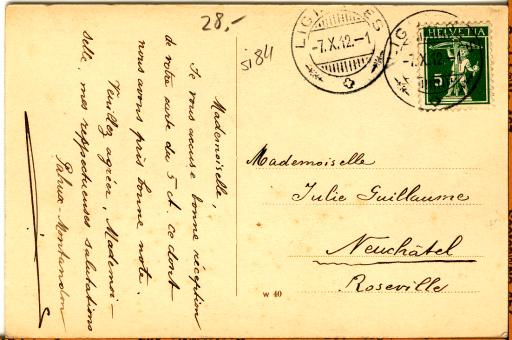 28,-
si84
LIGNIÈRES
-7.X.12.-1
LIGNIÈRES
-7.X.12.-1
HELVETIA
5
Mademoiselle,
Je vous accuse bonne réception
de votre carte du 5 ct. ce dont
nous avons pris bonne note.
Veuillez agréer, Mademoi-
selle, nos respectueuses salutations
Mademoiselle
Julie Guillaume
Neuchâtel
Roseville
w 40